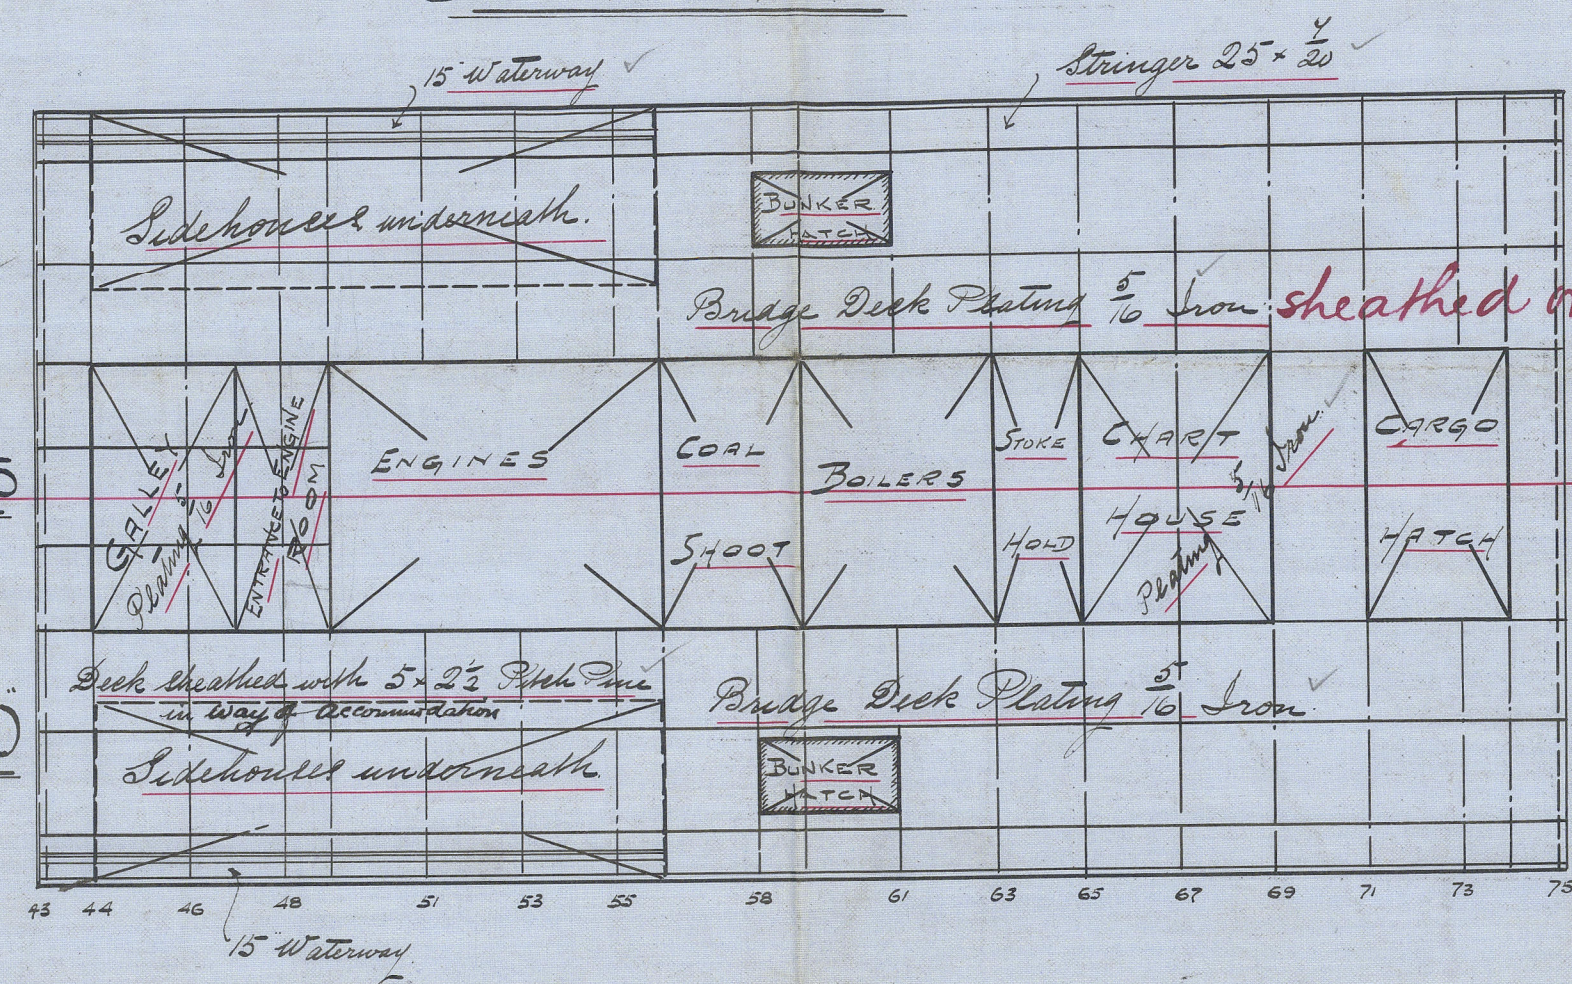 15" Waterway
Stringer 25 × 7/20
Sidehouses underneath.
BUNKER
HATCH
Bridge Deck Plating 5/16 Iron sheathed
GALLEY
Plating 5/16 Iron
ENTRANCE TO ENGINE
ROOM
ENGINES
COAL
SHOOT
BOILERS
STOKE
HOLD
CHART
HOUSE
Plating 5/16 Iron.
CARGO
HATCH
Deck sheathed with 5 × 2½ Pitch Pine
in way of accommodation
Bridge Deck Plating 5/16 Iron
Sidehouses underneath.
BUNKER
HATCH
43 44 46 48 51 53 55 58 61 63 65 67 69 71 73 75
15" Waterway